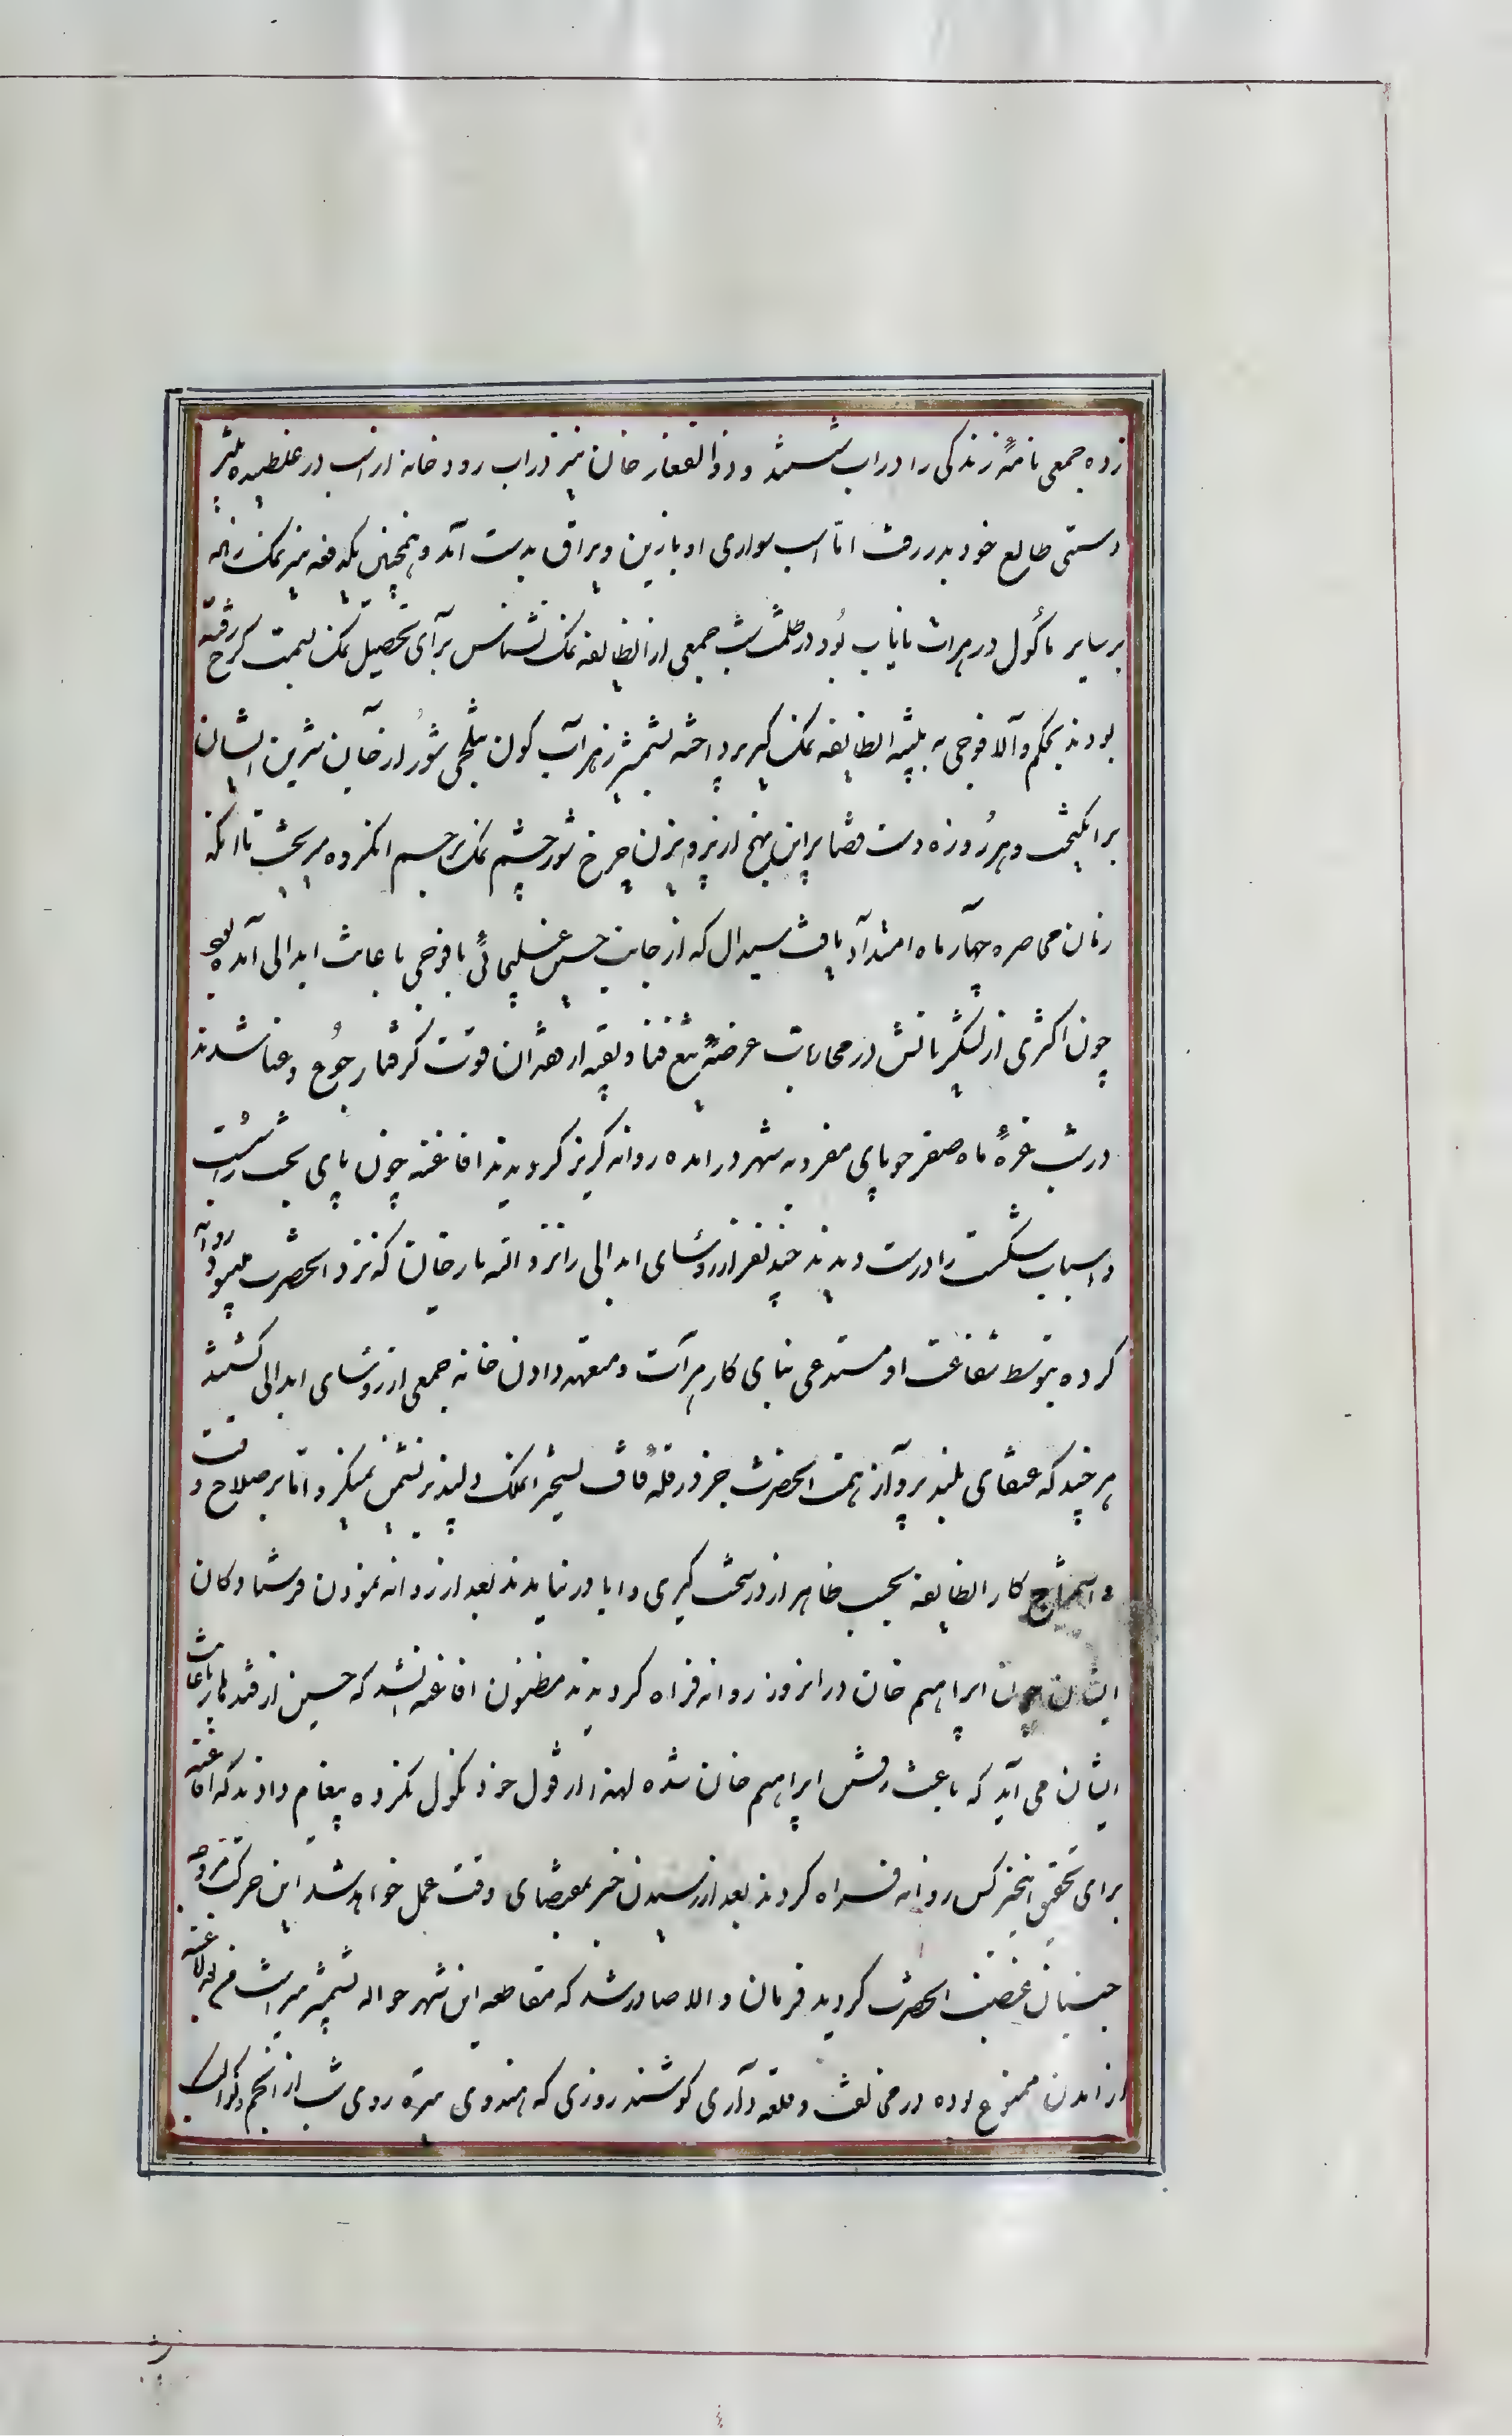 زده جمعی نامهٔ زندگی را در اب شستند و ذوالفقار خان نیز در اب رودخانه از اسب در غلطیده بپر
دستی طالع خود بدر رفت اما اسب سواری او بازین ویراق بدست آمد و همچنین یکدفعه نیز نمک زنه
بر سایر ماکول در هرات نایاب بود در ظلمت شب جمعی از انطایفه نمک نشناس برای تحصیل نمک بسمت کرخ رفته
بودند بحکم والا فوجی به تنبیه انطایفه نمک گیر پرداخته بشمشیر زهر آب گون تلخی شور از جان شیرین ایشان
برانگیخت و هر روزه دست قضا براین نهج از پرویزن چرخ شور چشم نمک بر جسم انکروه میریخت تا انکه
زمان محاصره چهار ماه امتداد یافت سیدال که از جانب حسین غلیجائی با فوجی باعانت ابدالی آمده بود
چون اکثری از لشکریانش در محاربات عرضهٔ تیغ فنا و بقیه از فقدان قوت گرفتار جوع و عنا شدند
در شب غرهٔ ماه صفر جویای مفر و به شهر در امده روانه گریز گردیدند افاغنه چون پای بخت را سست
و اسباب شکست را درست دیدند چند نفر از رؤسای ابدالی را نزد الله یار خان که نزد انحضرت میبود روانه
کرده بتوسط شفاعت او مستدعی بنای کار هرات و متعهد دادن خانه جمعی از رؤسای ابدالی گشتند
هر چند که عنقای بلند پرواز همت انحضرت جز در قلهٔ قاف تسخیر انملک دلپذیر نشیمن نمیگزد اما بر صلاح وقت
و استمزاج کار انطایفه بحسب ظاهر از در سخت گیری و ابا در نیامدند بعد از روانه نمودن فرستادکان
ایشان چون ابراهیم خان در انروز روانه فراه گردیدند مظنون افاغنه انشد که حسین از قندهار باعانت
ایشان می آید که باعث رفتن ابراهیم خان شده لهذا از قول خود نکول نکرده پیغام دادند که افاغنه
برای تحقیق اینخبر کس روانه فراه کردند بعد از رسیدن خبر بمقتضای وقت عمل خواهد شد این حرکت مروحه
جنبان غضب انحضرت گردید فرمان والا صادر شد که مقاطعه این شهر حواله شمشیر میراث افاغنه
از امدن ممنوع بوده در مخالفت و قلعه داری کوشند روزی که هندوی تیره روی شب از انجم و کواکب